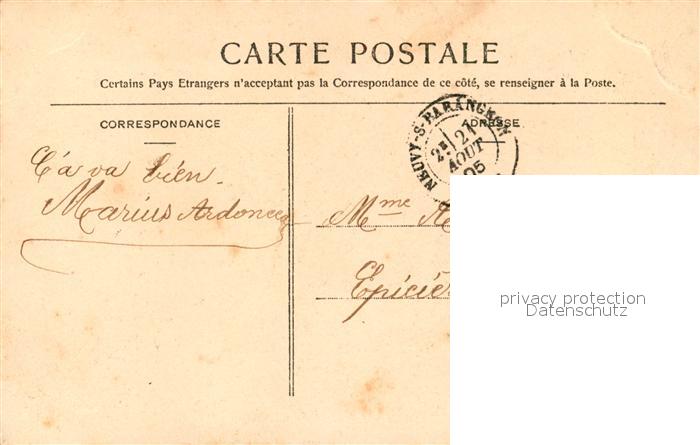 CARTE POSTALE
Certains Pays Etrangers n'acceptant pas la Correspondance de ce côté, se renseigner à la Poste.
CORRESPONDANCE
ADRESSE
NEUVY-S-BARANGEON
2E 21
AOUT
05
Ça va bien.
Marius
Mme
Epiciè
privacy protection
Datenschutz